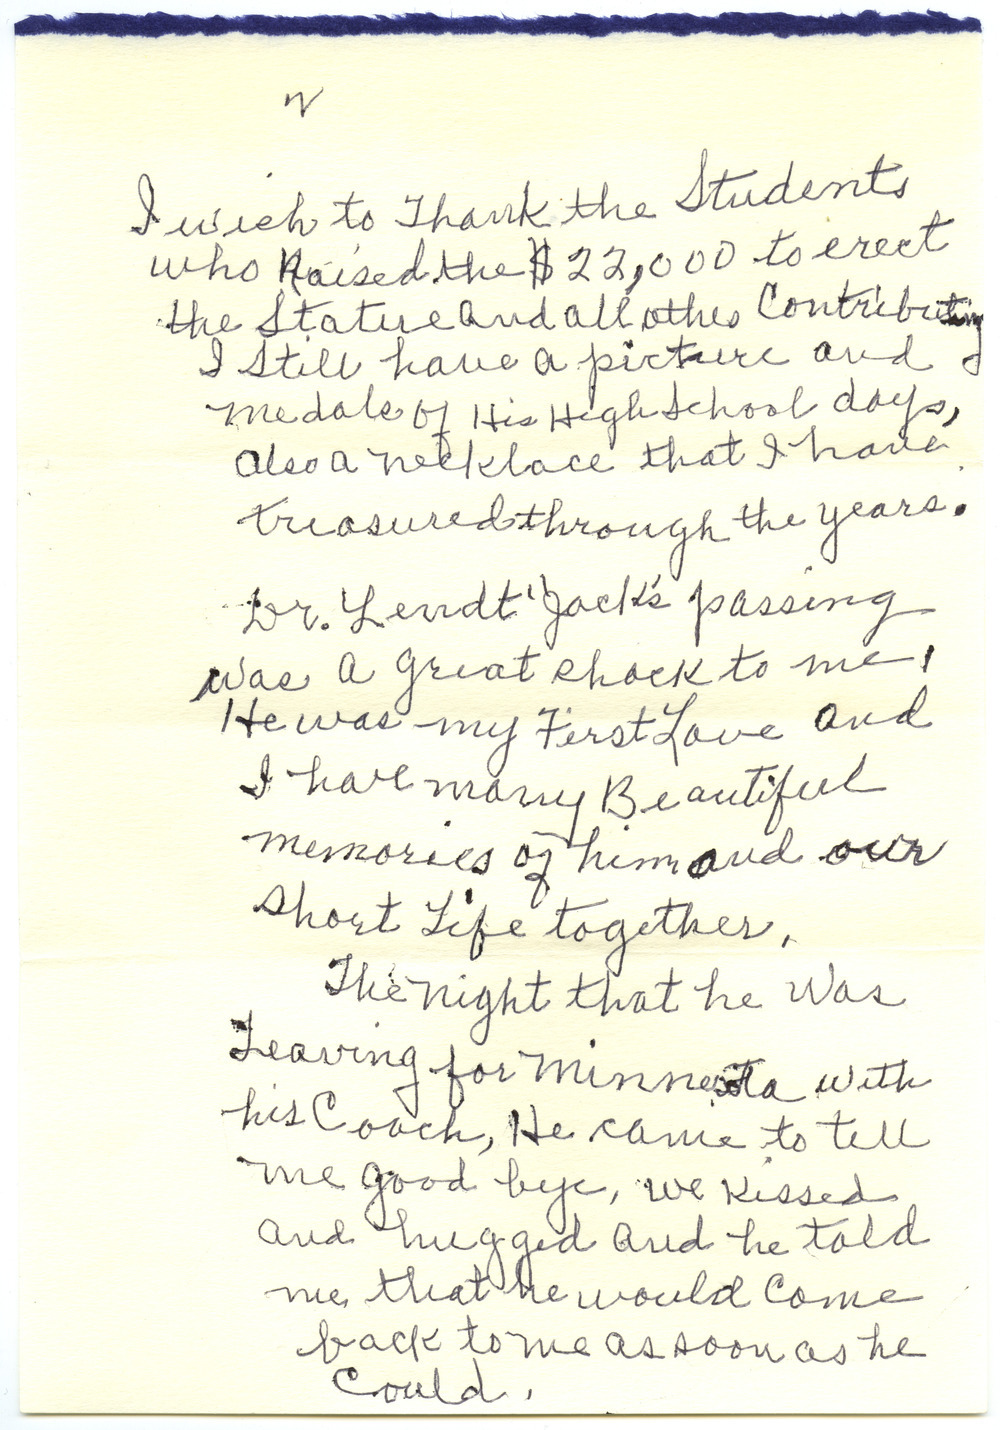 I wish to Thank the Students
who Raised the $22,000 to erect
the Statue and all other Contributing
I Still have a picture and
medals of His High School days,
also a necklace that I have
treasured through the years.
Dr. Lendt "Jack's passing
was a great shock to me,
He was my First Love and
I have many Beautiful
memories of him and our
short Life together.
The night that he was
Leaving for Minnesota with
his Coach, He came to tell
me good bye, we kissed
and hugged and he told
me that he would Come
back to me as soon as he
Could.